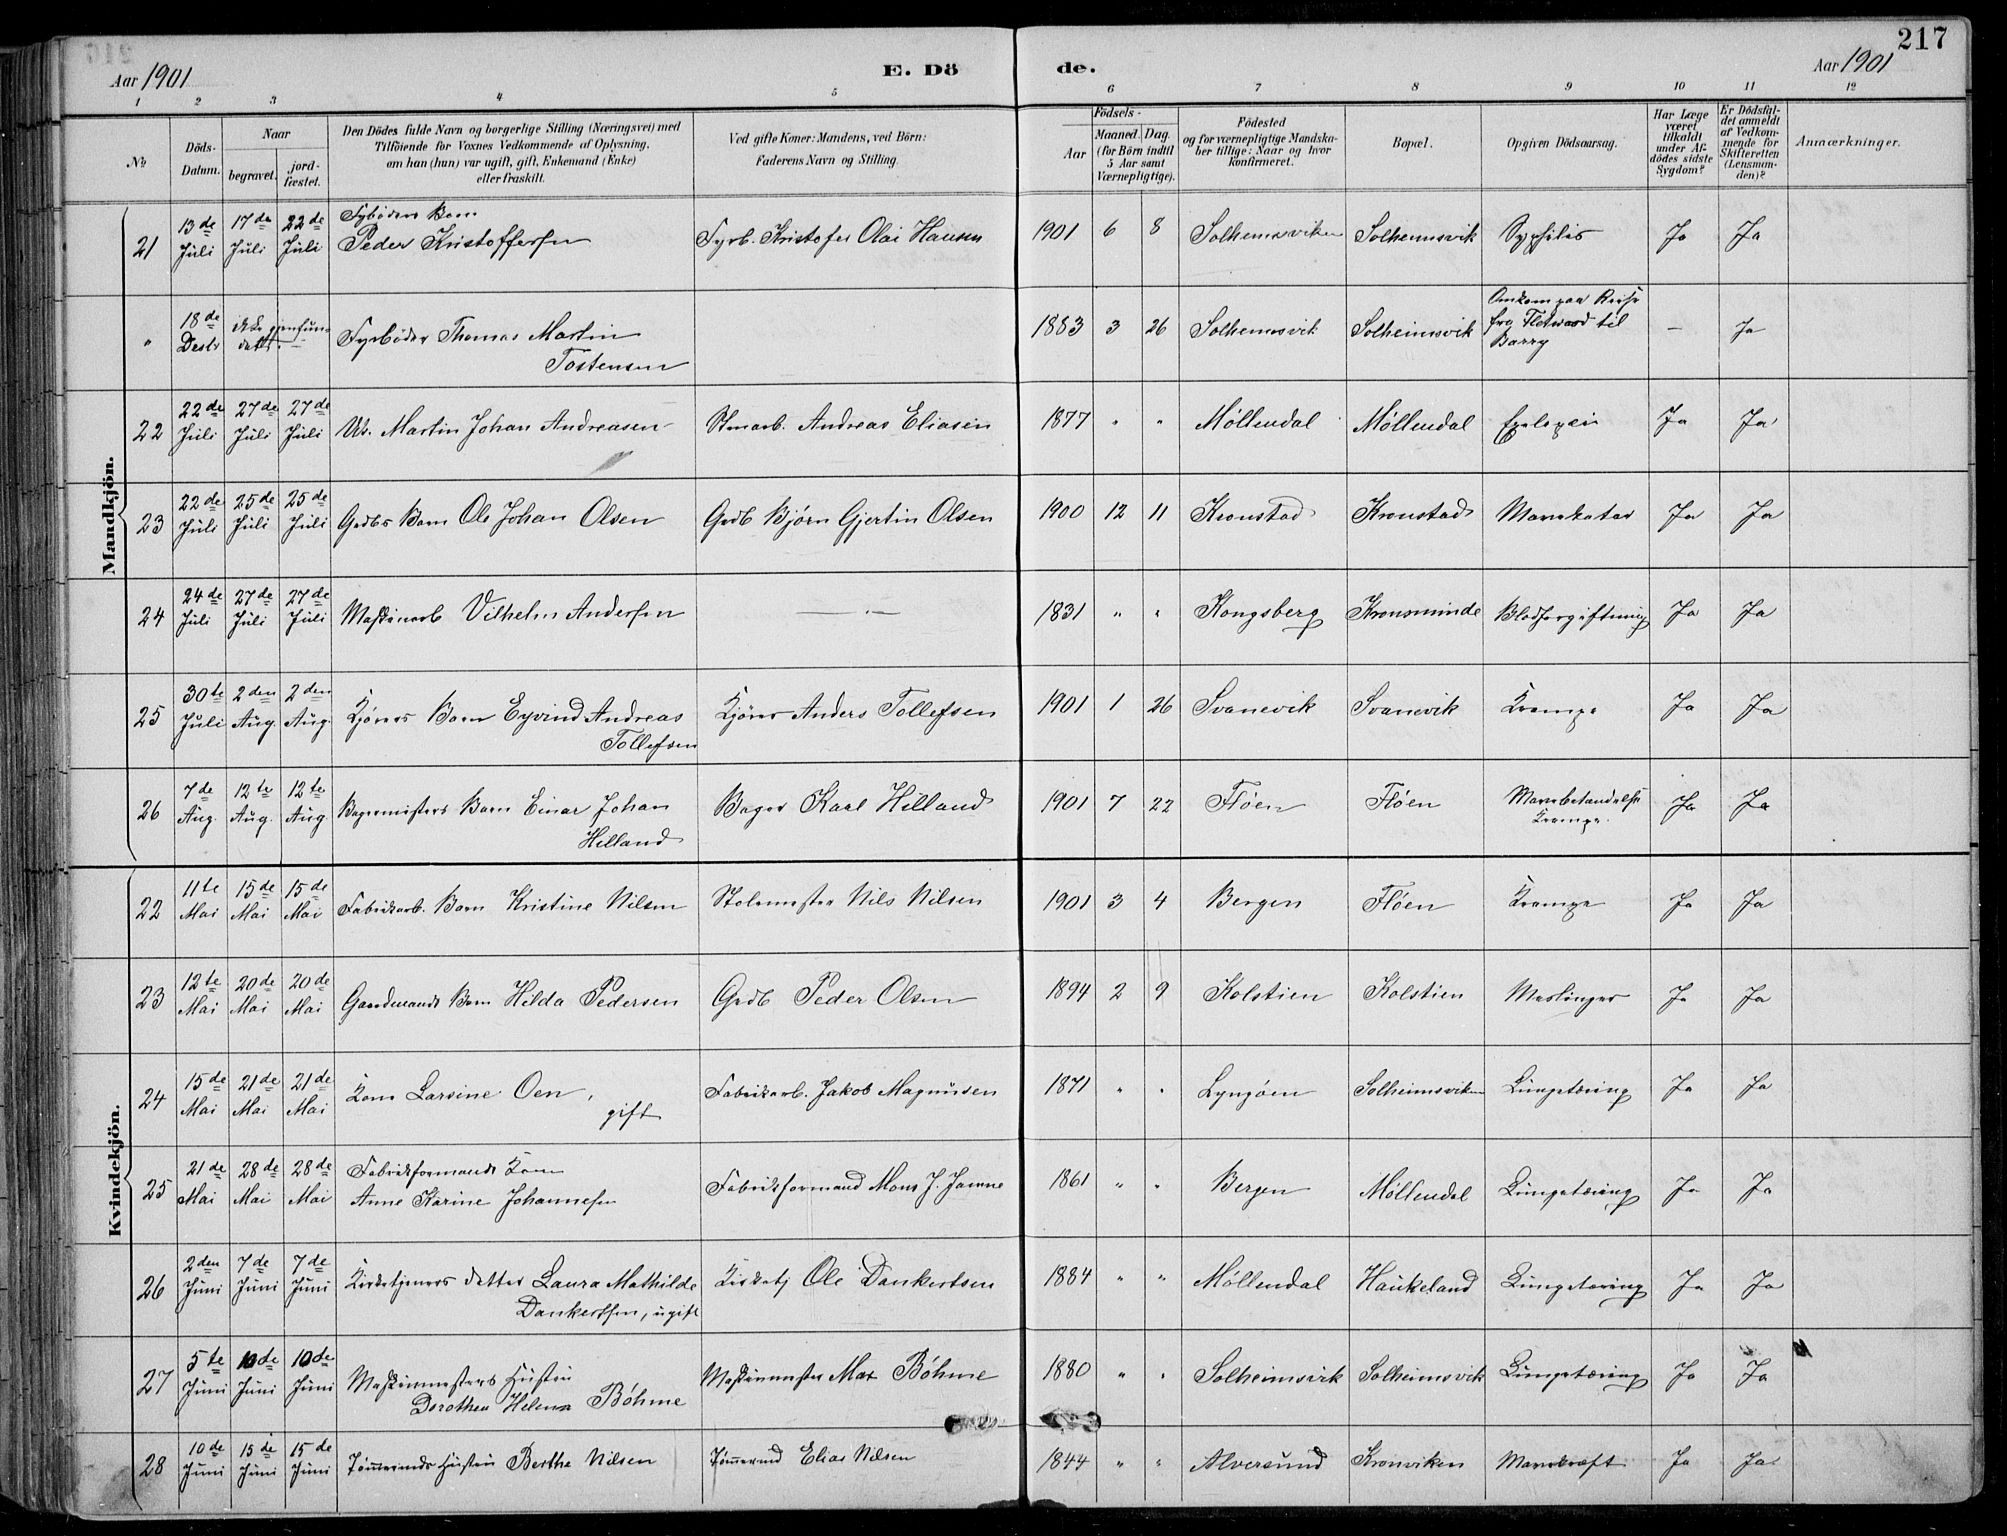 217
Aar 1901
E. Dö
de.
Aar 1901
1 2 3 4 5 6 7 8 9 10 11 12
No
Döds-Datum.
Naar
begravet.
jord-fæstet.
Den Dödes fulde Navn og borgerlige Stilling (Næringsvei) med
Tilföiende for Voxnes Vedkommende af Oplysning,
om han (hun) var ugift, gift, Enkemand (Enke)
eller fraskilt.
Ved gifte Koner: Mandens, ved Börn:
Faderens Navn og Stilling.
Födsels-
Aar
Maaned. Dag.
(for Börn indtil
5 Aar samt
Værnepligtige).
Födested
og for værnepligtige Mandska-
ber tillige: Naar og hvor
konfirmeret.
Bopæl.
Opgiven Dödsaarsag.
Har Læge
været
tilkaldt
under Af-
dödes sidste
Sygdom?
Er Dödsfal-
det anmeldt
af Vedkom-
mende for
Skifteretten
(Lensman-
den)?
Anmærkninger.
Mandkjön.
21 13de Juli 17de Juli 22de Juli Fyrbøders Barn
Peder Kristoffersen Fyrb. Kristofer Olai Hansen 1901 6 8 Solheimsviken Solheimsvik Syphilis Ja Ja
" 18de Decbr ikke gjenfun-
dett Fyrbøder Thomas Martin
Tostensen 1883 3 26 Solheimsvik Solheimsvik Omkom paa Reise
fra Flotwood til
Barry — Ja
22 22de Juli 27de Juli 27de Juli Martin Johan Andreasen Stenarb. Andreas Eliasen 1877 " " Møllendal Møllendal Epelepsi Ja Ja
23 22de Juli 25de Juli 25de Juli Grdbs Barn Ole Johan Olsen Grdb Bjørn Gjertin Olsen 1900 12 11 Kronstad Kronstad Mavekatar Ja Ja
24 24de Juli 27de Juli 27de Juli Maskinarb Vilhelm Andersen — " — 1831 " " Kongsberg Kronsminde Blodforgiftning Ja Ja
25 30te Juli 2den Aug. 2den Aug. Kjørers Barn Eyvind Andreas
Tollefsen Kjører Anders Tollefsen 1901 1 26 Svanevik Svanevik Krampe Ja Ja
26 7de Aug. 12te Aug. 12te Aug Bagermesters Barn Einar Johan
Hilland Bager Karl Hilland 1901 7 22 Fløen Fløen Mavebetændelse
Krampe. Ja Ja
Kvindekjön.
22 11te Mai 15de Mai 15de Mai Fabrikarb. Barn Kristine Nilsen Stolemester Nils Nilsen 1901 3 4 Bergen Fløen Krampe Ja Ja
23 12te Mai 20de Mai 20de Mai Gaardmands Barn Hilda Pedersen Grdb Peder Olsen 1894 2 9 Kolstien Kolstien Meslinger Ja Ja
24 15de Mai 21de Mai 21de Mai Kone Larsine Oen,
gift Fabrikarb. Jakob Magnusen 1871 " " Lyngøen Solheimsviken Lungetæring Ja Ja
25 21de Mai 28de Mai 28de Mai Fabrikformands Kone
Anne Karine Johannesen Fabrikformand Mons J. Jamne 1861 " " Bergen Møllendal Lungetæring Ja Ja
26 2den Juni 7de Juni 7de Juni Kirketjeners datter Laura Mathilde
Dankertsen, ugift Kirketj Ole Dankertsen 1884 " " Møllendal Haukeland Lungetæring Ja Ja
27 5te Juni 10de Juni 10de Juni Maskinmesters Hustru
Dorothea Helena Böhme Maskinmester Max Böhme 1880 " " Solheimsvik Solheimsvik Lungetæring Ja Ja
28 10de Juni 15de Juni 15de Juni Tømmermds Hustru Berthe Nilsen Tømmermd Elias Nilsen 1844 " " Alversund Kronviken Mavekræft Ja Ja